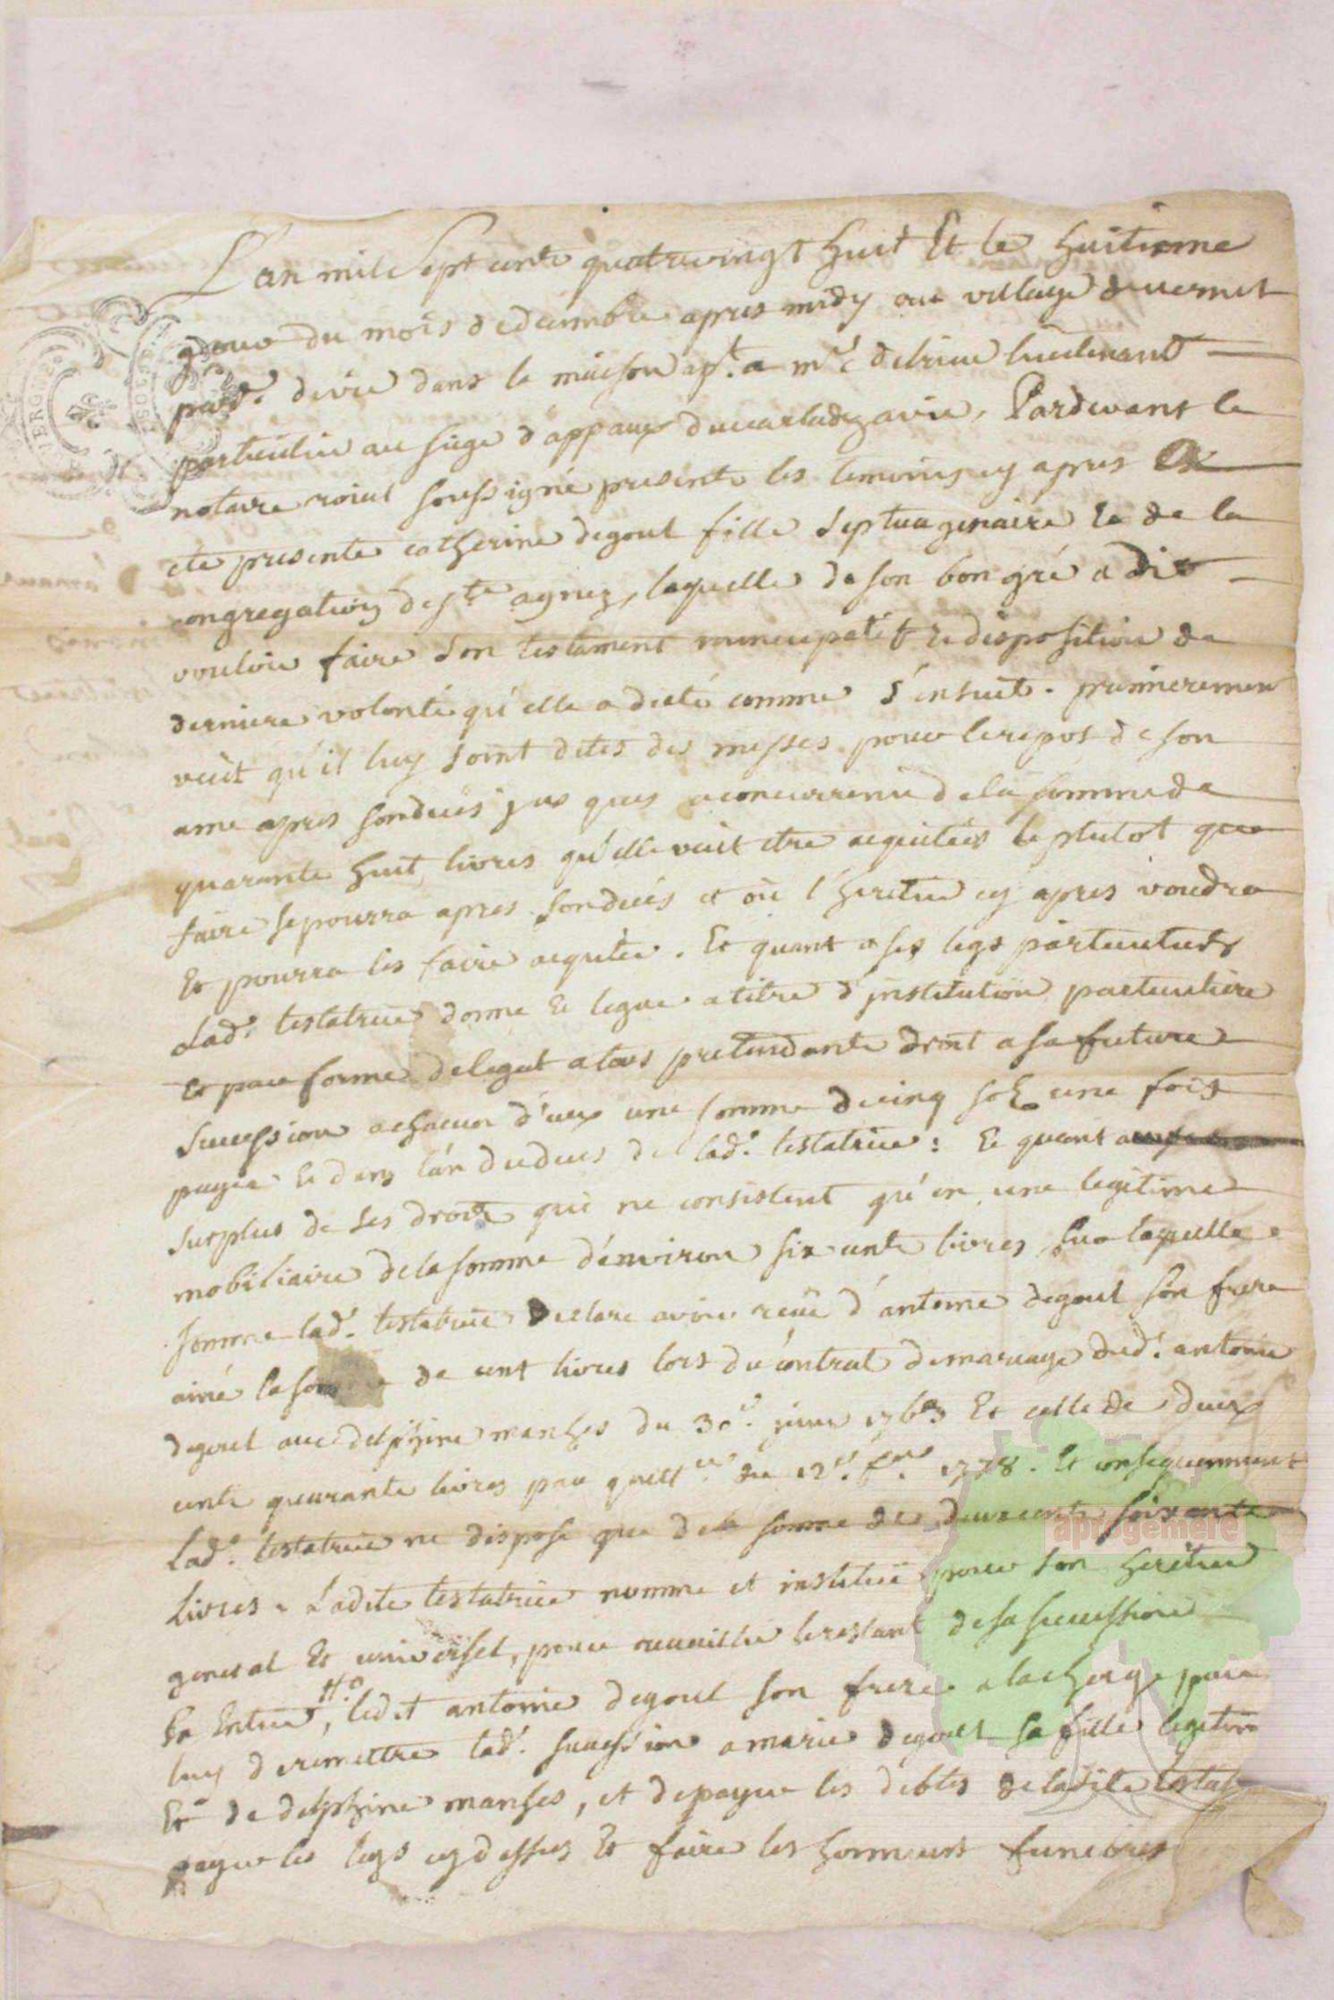 L'an mil Sept cents quatrevingt huit Et le huitieme
jour du mois de decembre apres midy au village de vernet
par.^e de vic dans la maison ap.^t a m.^e delrieu lieutenant
particulier au siege d'appaux du carladez a vic, Pardevant le
notaire roial soussigné presents les temoins cy apres
ete presente catherine degoul fille Septuagenaire Et de la
congregation de s.^te agnez, laquelle de son bon gré a dit
vouloir faire son testament nuncupatif Et disposition de
derniere volonté qu'elle a dicté comme s'ensuit. premierement
veut qu'il luy soint dites des messes pour le repos de son
ame apres son deces jus ques a concurrence de la somme de
quarante huit livres qu'elle veut etre acquitées le plutot que
faire se pourra apres son deces et où l'heritier cy apres voudra
Et pourra les faire acquiter. Et quant a ses legs particuliers
Lad.^e testatrice donne Et legue a titre d'institution particuliere
Et par forme de legat a tous pretendants droit a sa future
Succession a chacun d'eux une somme de cinq sols une fois
payée Et dans l'an du deces de lad.^e testatrice: Et quant au
surplus de ses droits qui ne consistent qu'en une legitime
mobiliaire de la somme d'environ six cents livres sur laquelle
somme lad.^e testatrice Declare avoir reçu d'antoine degoul son frere
ainé la somme de cent livres lors du contrat de mariage dud.^t antoine
degoul avec delphine manhes du 30.^e 1763 Et celle de deux
cents quarante livres par quitt.^ce du 12.^e 1778. Et consequemment
Lad.^e testatrice ne dispose que de la somme de deux cents soixante
livres. Ladite testatrice nomme et institue pour son heritier
general Et universel, pour recueillir le restant de sa succession
led.^t antoine degoul son frere a la charge par
luy de remettre lad.^e succession a marie degoul sa fille legitime
Et de delphine manhes, et de payer les debtes de ladite
payer les legs cy dessus Et faire les honneurs funebres
apropgemere